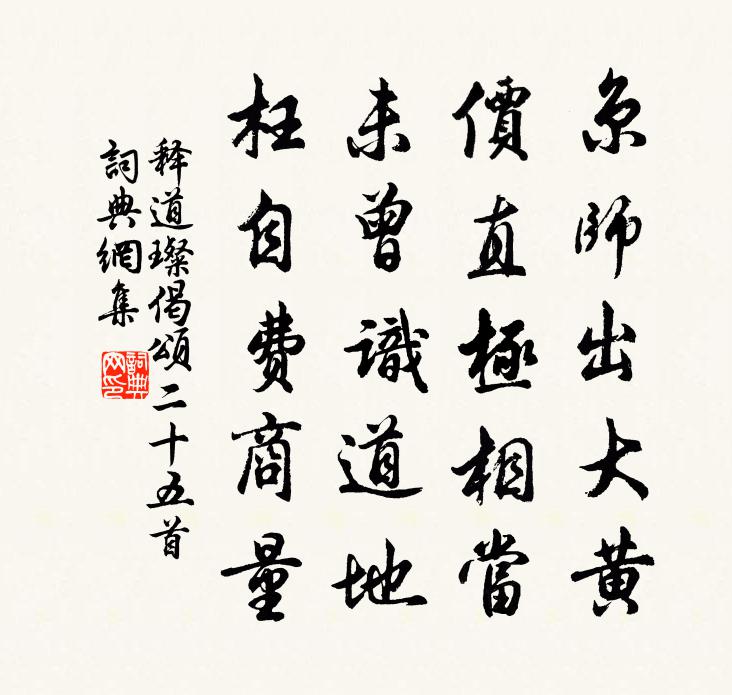 京師出大黄
價直極相當
未曾識道地
枉自費商量
释道璨偈頌二十五首
詞典網集
詞典网印